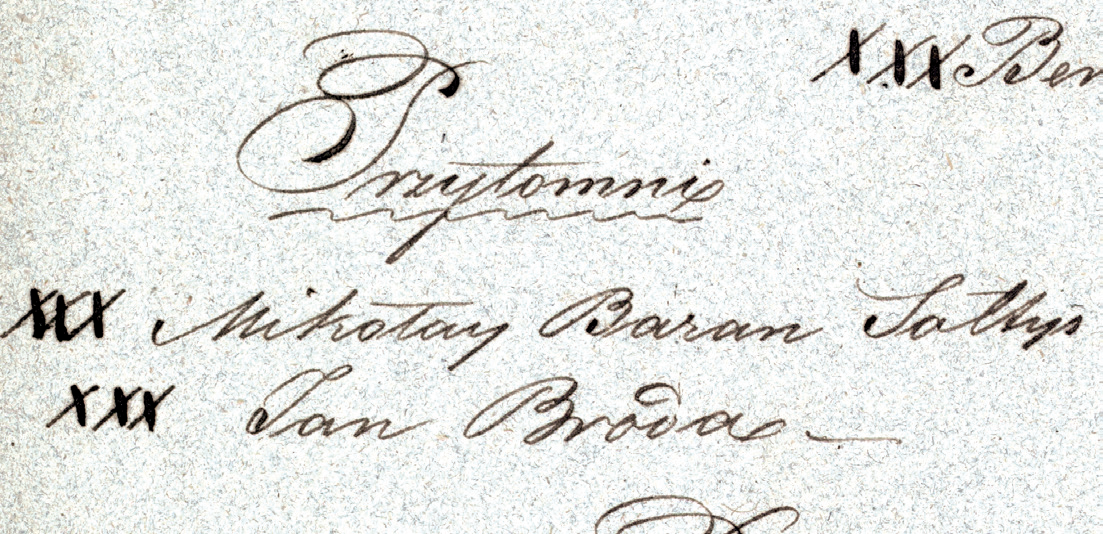 XXX Ber
Przytomni
XXX Mikołay Baran Sołtys
XXX Jan Broda